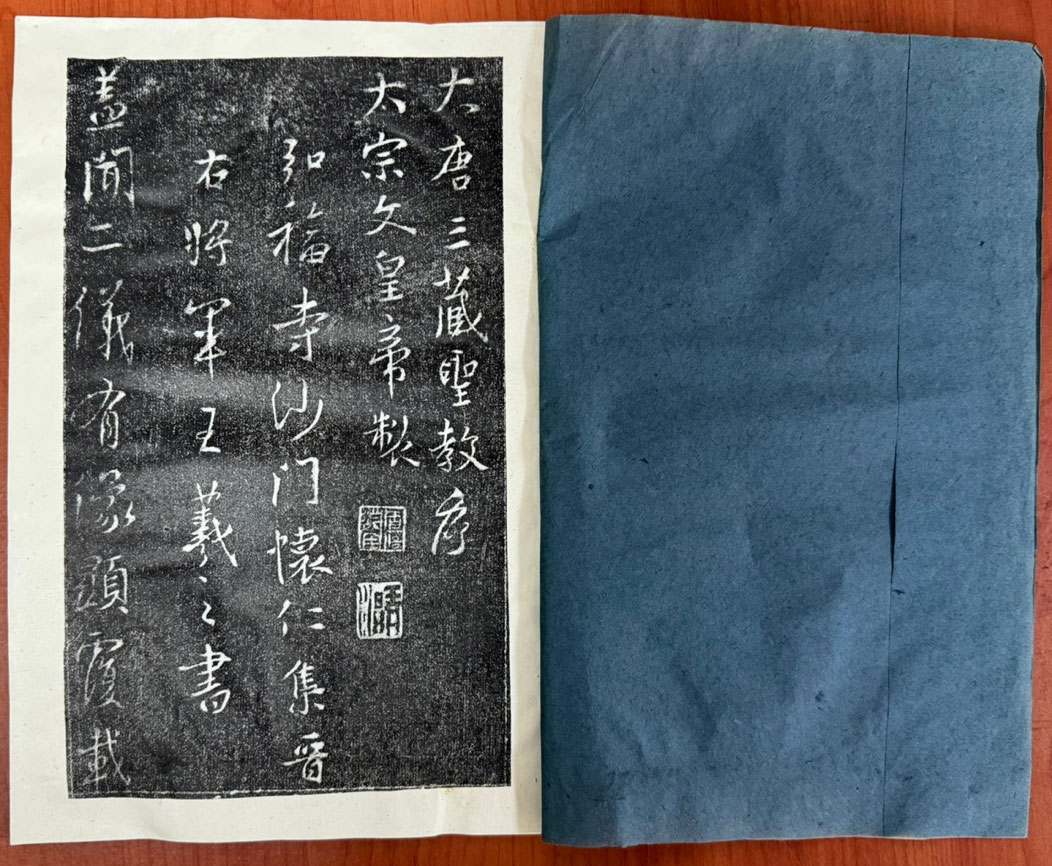 大唐三藏聖教序
太宗文皇帝製
弘福寺沙门懷仁集晋
右將軍王羲之書
盖聞二儀有像顯覆載